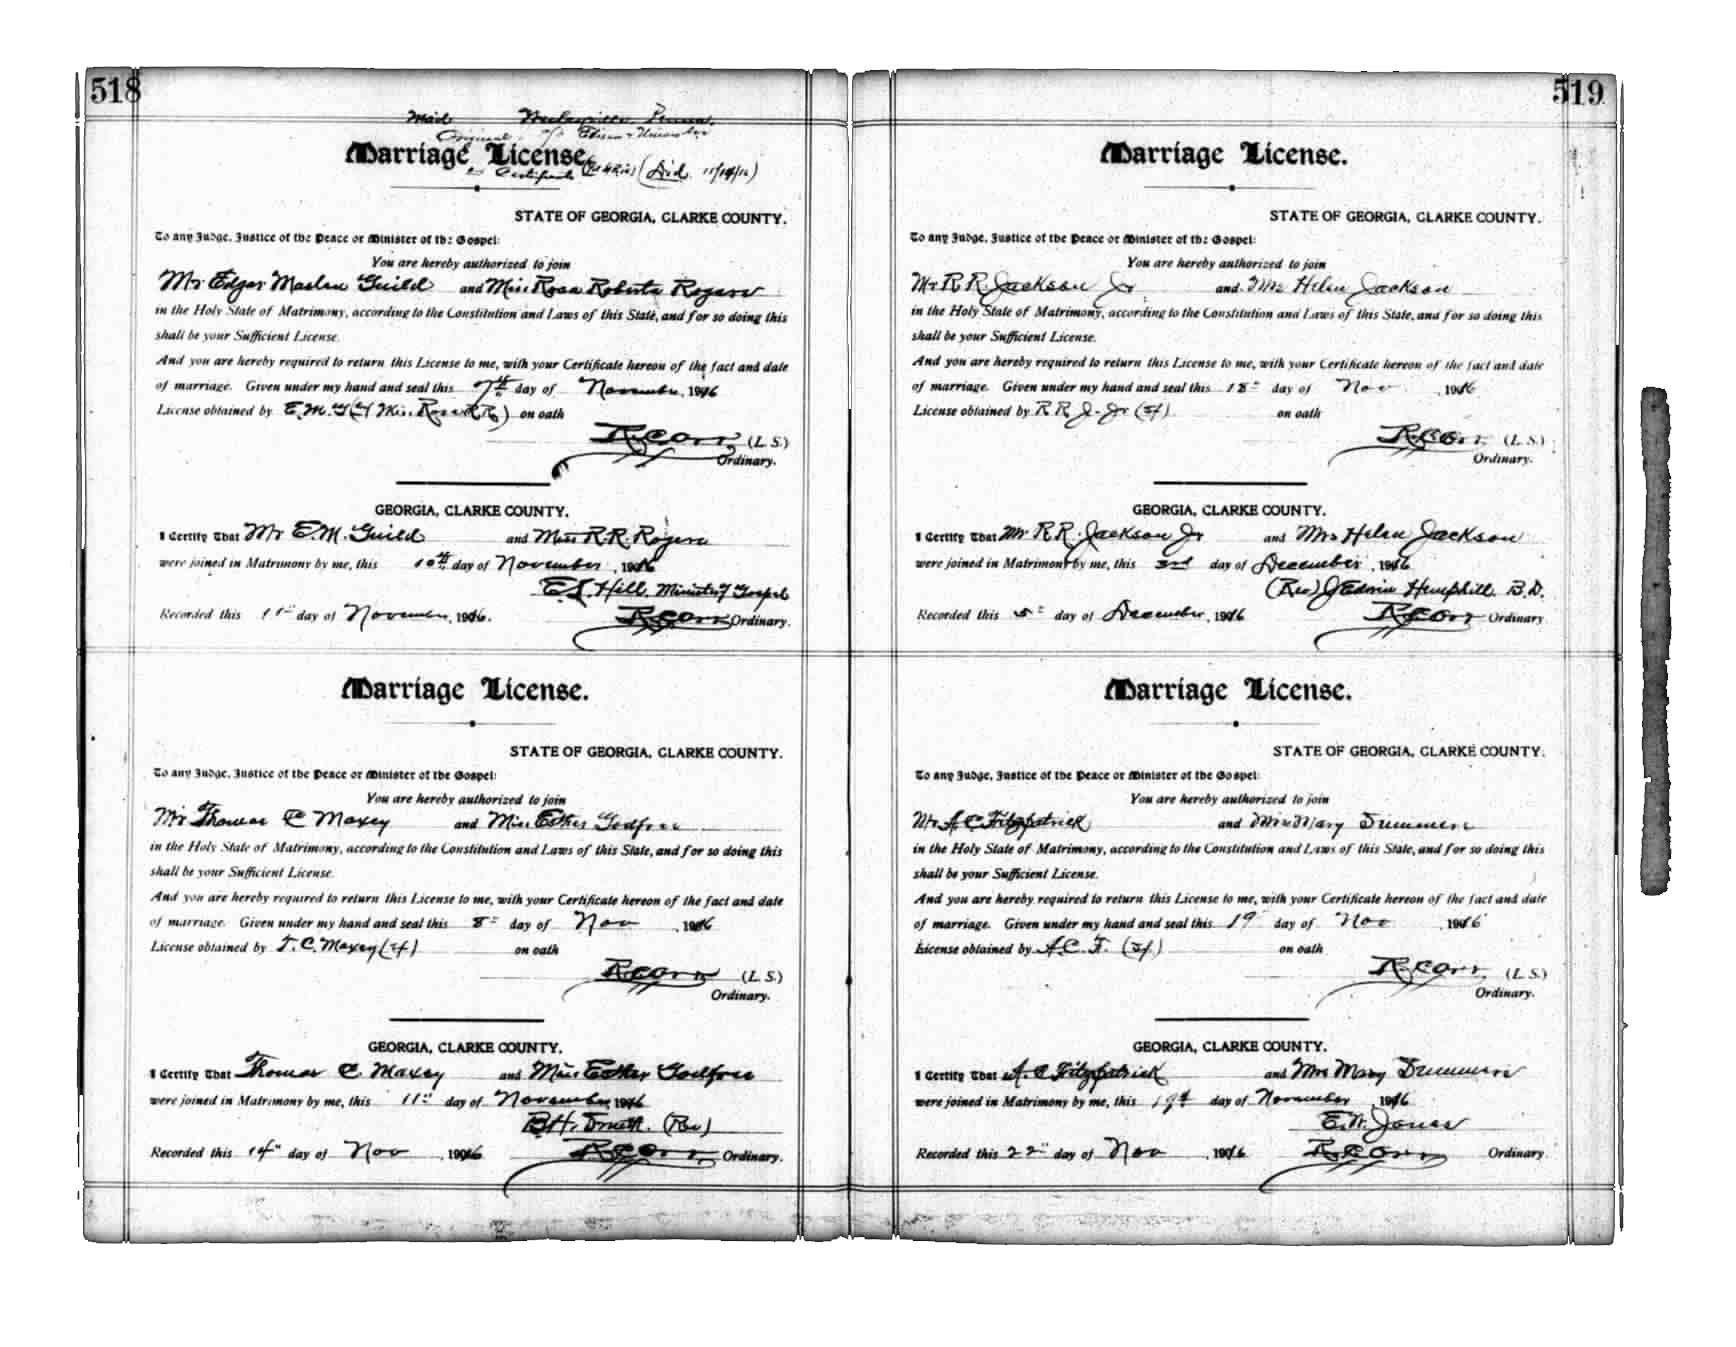 518
Mail
Original
Marriage License.
Certificate (Did 11/14/16)
STATE OF GEORGIA, CLARKE COUNTY.
To any Judge, Justice of the Peace or Minister of the Gospel:
You are hereby authorized to join
Mr Edgar Maslen Guild and Miss Rosa Roberta Rogers
in the Holy State of Matrimony, according to the Constitution and Laws of this State, and for so doing this
shall be your Sufficient License.
And you are hereby required to return this License to me, with your Certificate hereon of the fact and date
of marriage. Given under my hand and seal this 7th day of November, 1916
License obtained by E.M.G on oath
R.C. Orr (L. S.)
Ordinary.
GEORGIA, CLARKE COUNTY.
I Certify That Mr E.M. Guild and Miss R.R. Rogers
were joined in Matrimony by me, this 10th day of November, 1916
E.L. Hill, Minister of Gospel
Recorded this 11" day of November, 1916. R.C. Orr Ordinary.
Marriage License.
STATE OF GEORGIA, CLARKE COUNTY.
To any Judge, Justice of the Peace or Minister of the Gospel:
You are hereby authorized to join
Mr Thomas C Maxey and Miss Esther Godfree
in the Holy State of Matrimony, according to the Constitution and Laws of this State, and for so doing this
shall be your Sufficient License.
And you are hereby required to return this License to me, with your Certificate hereon of the fact and date
of marriage. Given under my hand and seal this 8" day of Nov, 1916
License obtained by T. C. Maxey (sf) on oath
R.C. Orr (L. S.)
Ordinary.
GEORGIA, CLARKE COUNTY.
I Certify That Thomas C. Maxey and Miss Esther Godfree
were joined in Matrimony by me, this 11" day of November, 1916
B.H. Smith. (Rev)
Recorded this 14" day of Nov, 1916 R.C. Orr Ordinary.
519
Marriage License.
STATE OF GEORGIA, CLARKE COUNTY.
To any Judge, Justice of the Peace or Minister of the Gospel:
You are hereby authorized to join
Mr R R Jackson Jr and Mrs Helen Jackson
in the Holy State of Matrimony, according to the Constitution and Laws of this State, and for so doing this
shall be your Sufficient License.
And you are hereby required to return this License to me, with your Certificate hereon of the fact and date
of marriage. Given under my hand and seal this 18" day of Nov, 1916
License obtained by R R J- Jr (sf) on oath
R.C. Orr (L. S.)
Ordinary.
GEORGIA, CLARKE COUNTY.
I Certify That Mr R R. Jackson Jr and Mrs Helen Jackson
were joined in Matrimony by me, this 3rd day of December, 1916
(Rev) J Edwin Hemphill B.D.
Recorded this 5" day of December, 1916 R.C. Orr Ordinary
Marriage License.
STATE OF GEORGIA, CLARKE COUNTY.
To any Judge, Justice of the Peace or Minister of the Gospel:
You are hereby authorized to join
Mr A C Fitzpatrick and Mrs Mary
in the Holy State of Matrimony, according to the Constitution and Laws of this State, and for so doing this
shall be your Sufficient License.
And you are hereby required to return this License to me, with your Certificate hereon of the fact and date
of marriage. Given under my hand and seal this 19 day of Nov 1916
License obtained by A.C. F. (sf) on oath
R.C. Orr (L. S.)
Ordinary.
GEORGIA, CLARKE COUNTY.
I Certify That A. C Fitzpatrick and Mrs Mary
were joined in Matrimony by me, this 19th day of November 1916
E.W. Jones
Recorded this 22" day of Nov, 1916 R C Orr Ordinary.